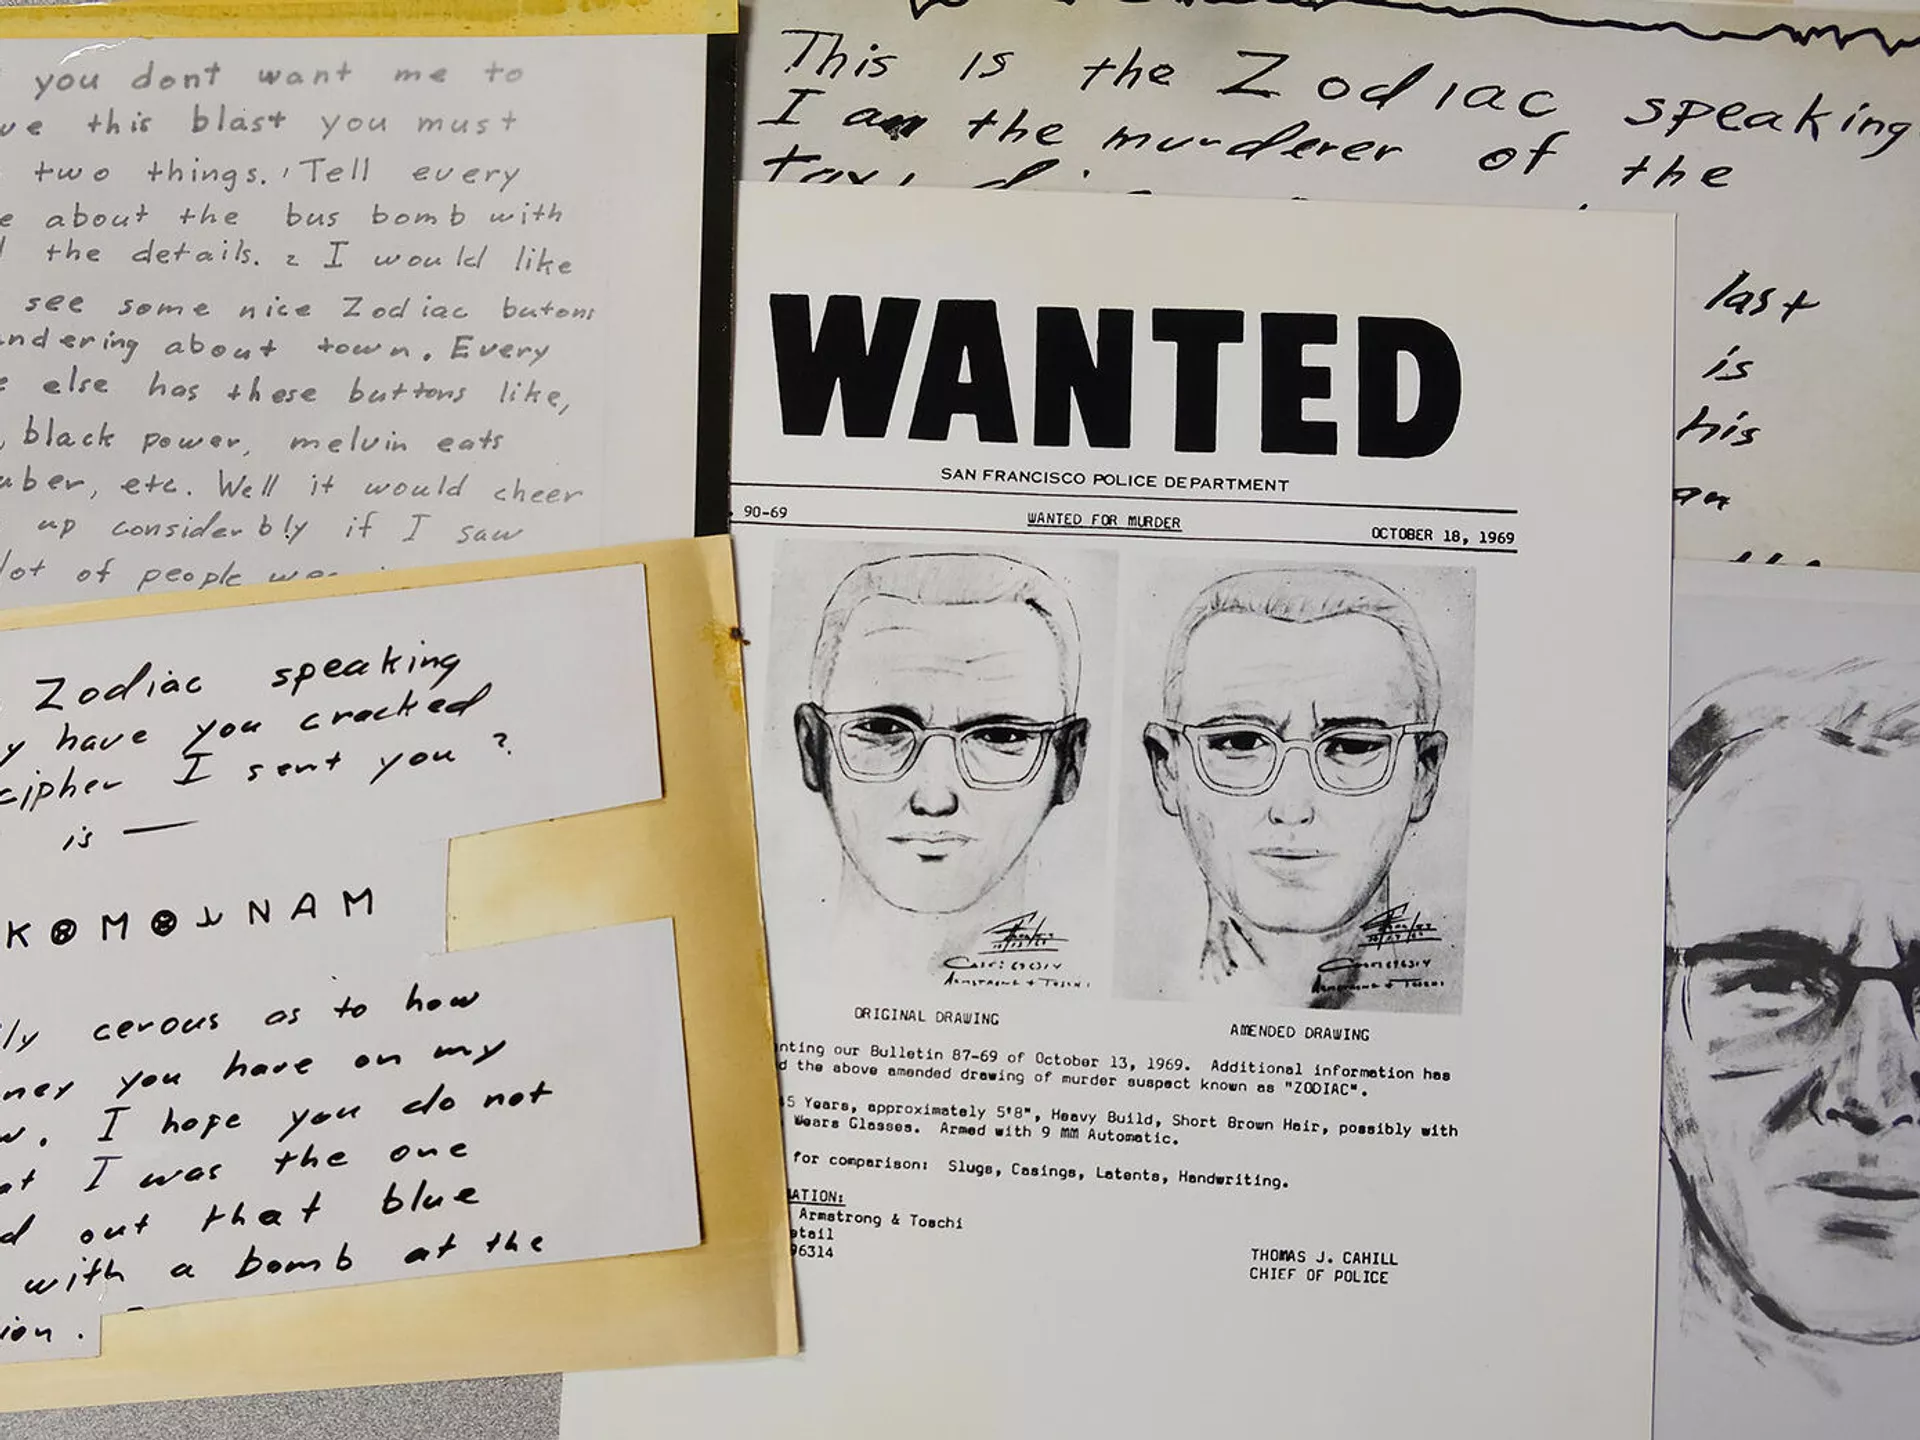 you dont want me to
ve this blast you must
two things. 1 Tell every
e about the bus bomb with
the details. 2 I would like
see some nice Zodiac butons
ndering about town. Every
e else has these buttons like,
, black power, melvin eats
uber, etc. Well it would cheer
up considerbly if I saw
lot of people
Zodiac speaking
y have you cracked
cipher I sent you ?
is —
K M N A M
ly cerous as to how
ney you have on my
w. I hope you do not
at I was the one
d out that blue
with a bomb at the
ion .
This is the Zodiac speaking
I am the murderer of the
last
is
his
an
WANTED
SAN FRANCISCO POLICE DEPARTMENT
90-69 WANTED FOR MURDER OCTOBER 18, 1969
ARMSTRONG + TOSCHI
ARMSTRONG + TOSCHI
ORIGINAL DRAWING AMENDED DRAWING
nting our Bulletin 87-69 of October 13, 1969. Additional information has
d the above amended drawing of murder suspect known as "ZODIAC".
5 Years, approximately 5'8", Heavy Build, Short Brown Hair, possibly with
Wears Glasses. Armed with 9 MM Automatic.
for comparison: Slugs, Casings, Latents, Handwriting.
ATION:
Armstrong & Toschi
etail
96314
THOMAS J. CAHILL
CHIEF OF POLICE